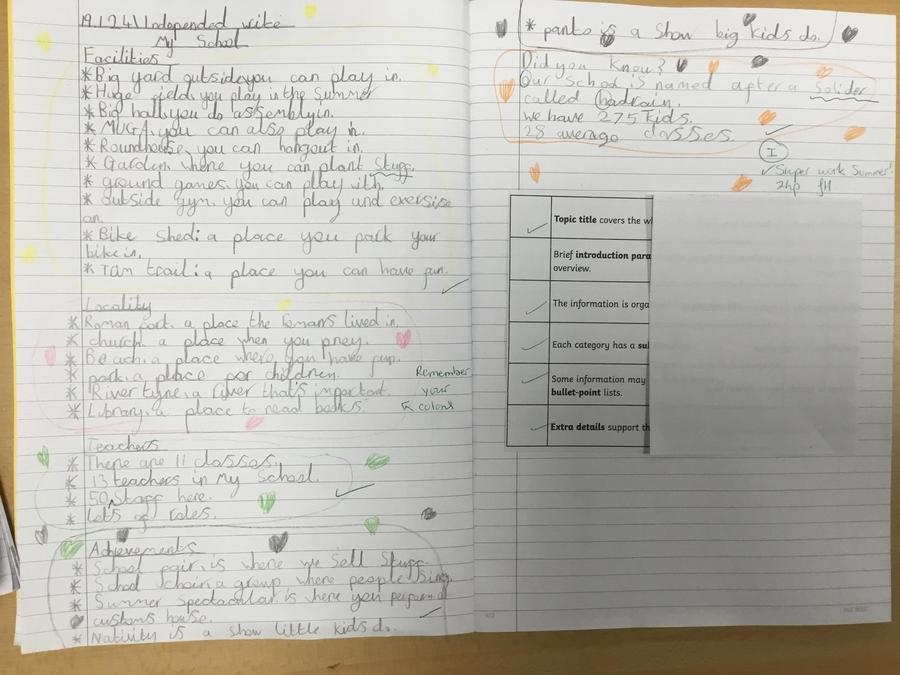 19.1.24 Independed write
My School
Facilities
* Big yard outside you can play in.
* Huge field, you play in the Summer
* Big hall, you do assembly in.
* MUGA, you can also play in.
* Roundhouse, you can hangout in.
* Garden, where you can plant Stuff.
* ground games, you can play with,
* outside gym, you can play and exersise
on.
* Bike Shed: a place you park your
bike in.
* Trim trail: a place you can have fun.
Locality
* Roman fort, a place the Romans lived in.
* church, a place when you prey.
* Beach, a place where you have fun.
* park, a place for children.
* River tyne, a river that's important.
* Library, a place to read books.
Remember
your
colons
Teachers
* There are 11 classes.
* 13 teachers in My School.
* 50 Staff here.
* lots of roles.
Achievements
* School fair, is where we Sell Stuff.
* School choir, a group where people Sing.
* Summer Spectacular, is where you perform at
customs house.
* Nativity is a show little kids do.
* panto is a Show big kids do.
Did you Know?
Our School is named after a Solider
called hadrain.
we have 275 Kids.
28 average classes.
I
Super work Summer!
2hp
Topic title covers the w
Brief introduction para
overview.
The information is orga
Each category has a su
Some information may
bullet-point lists.
Extra details support th